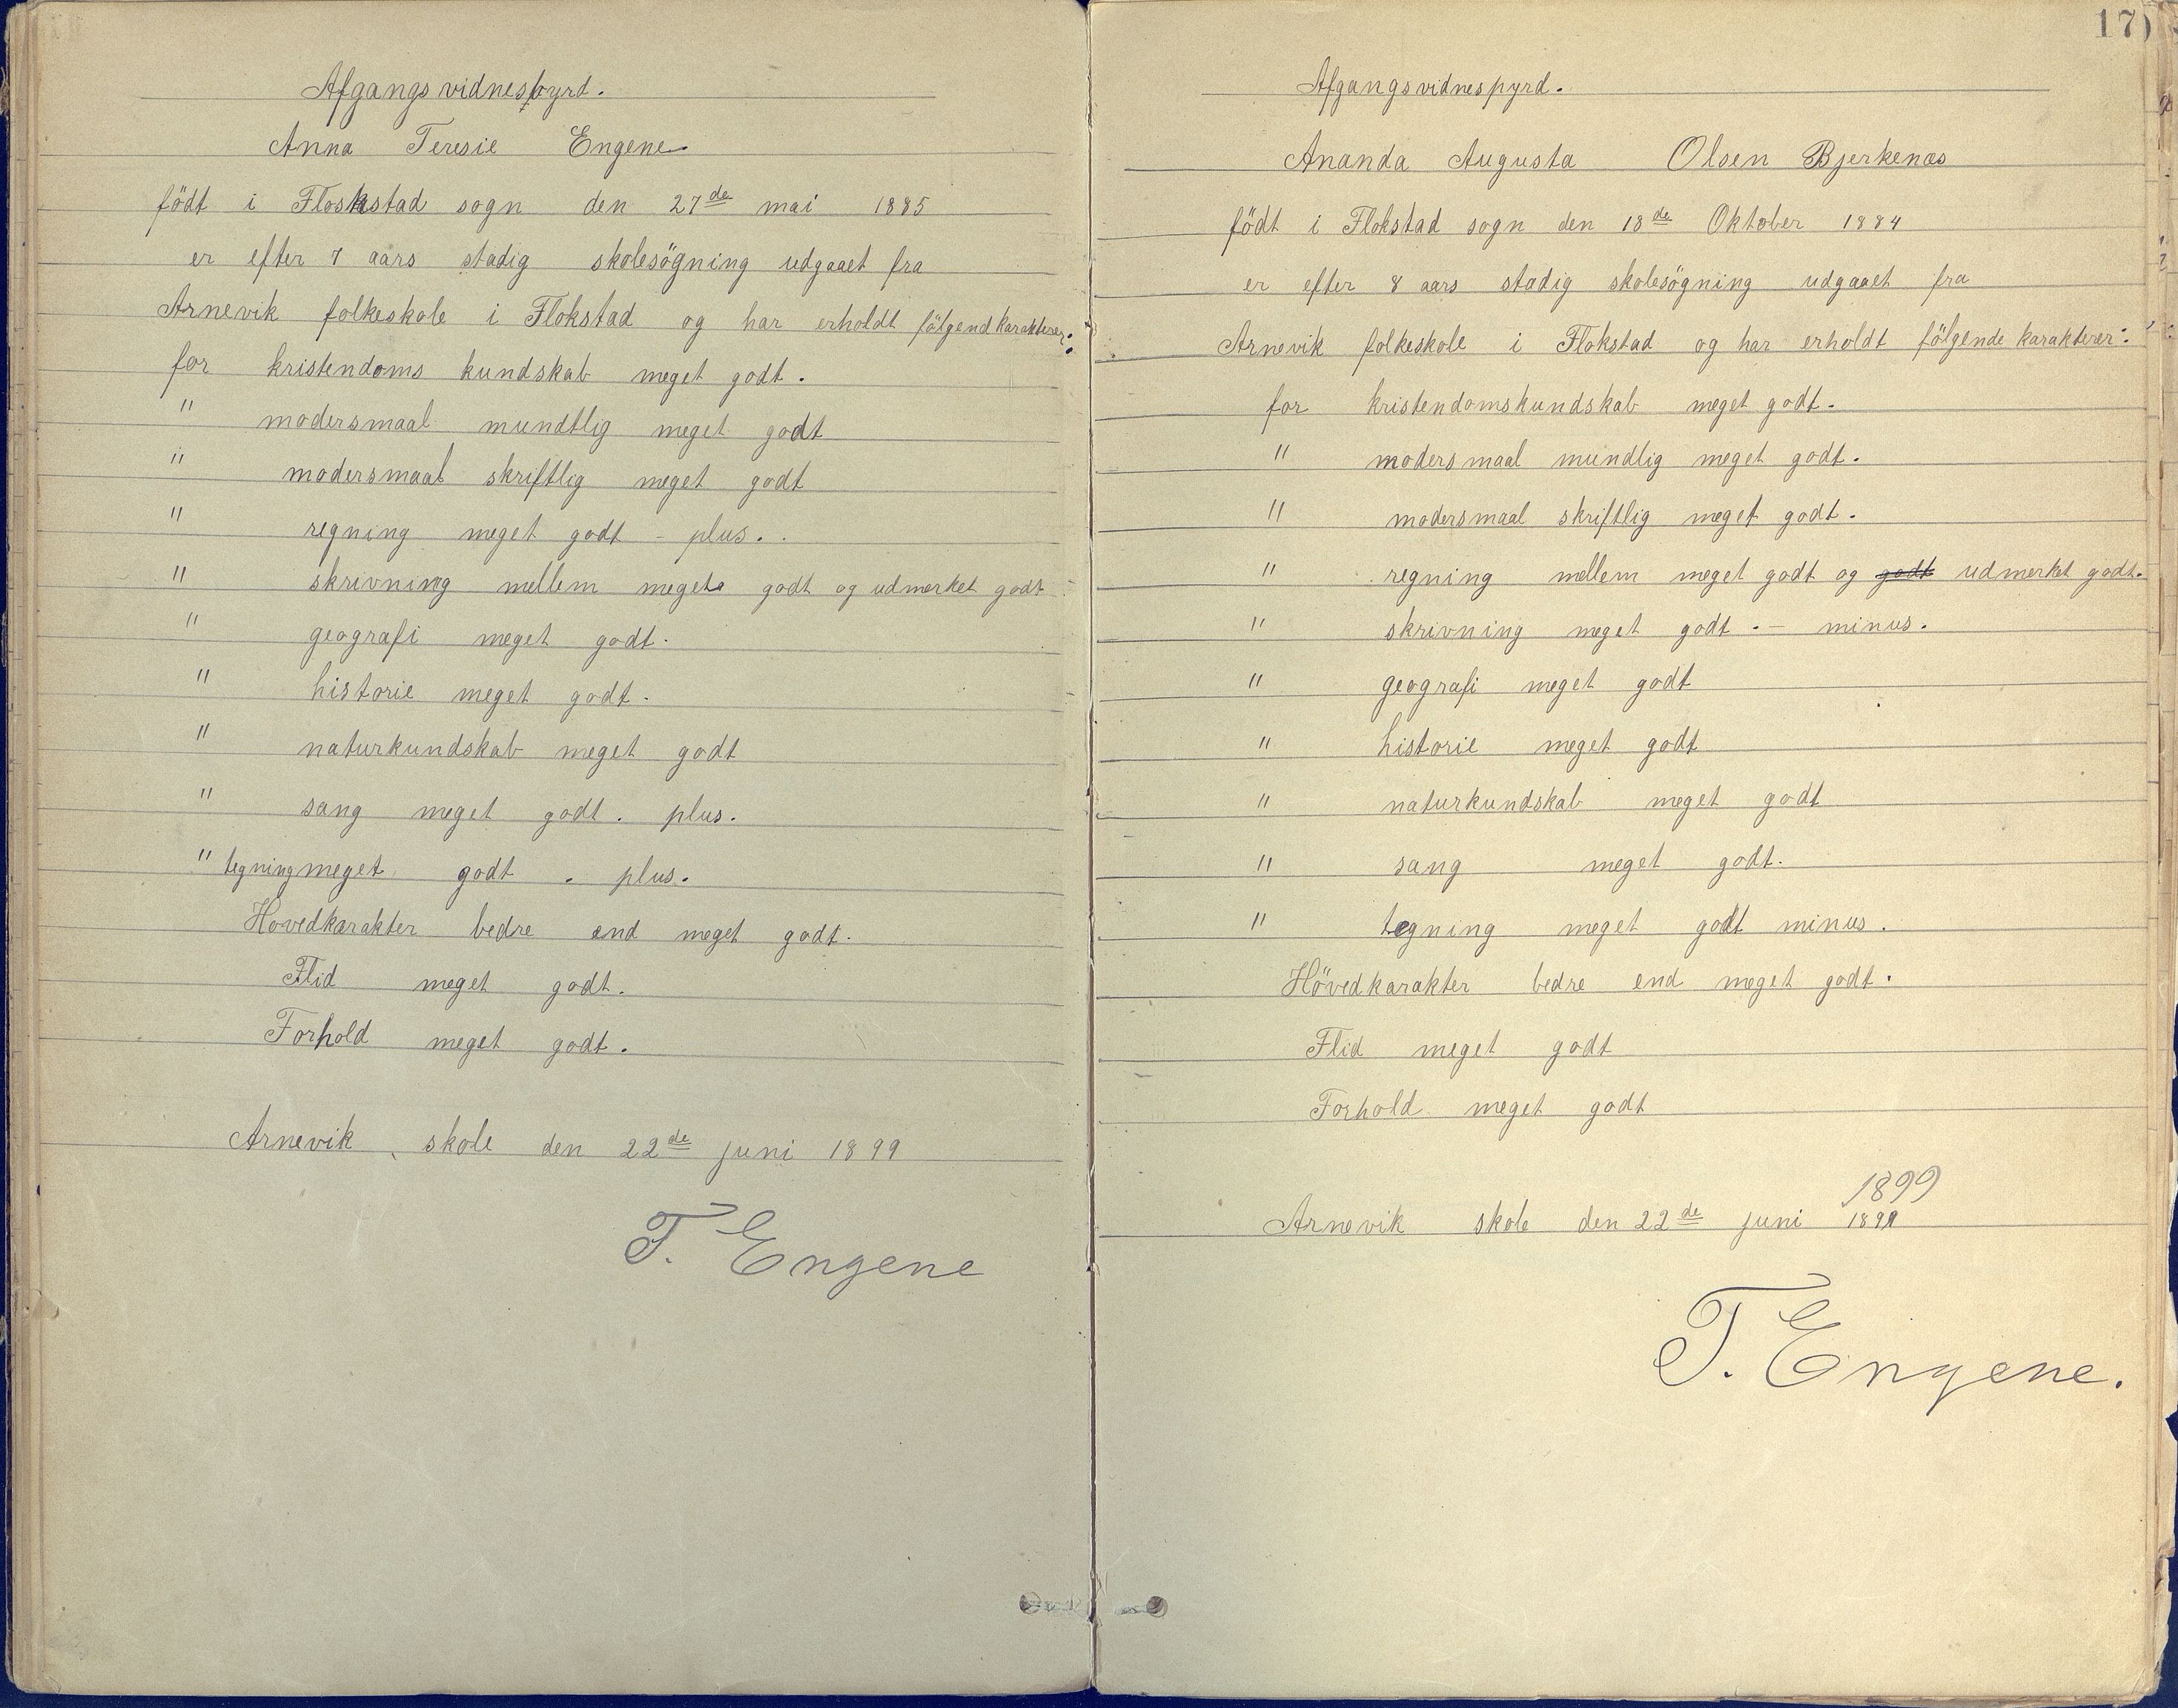 Afgangsvidnesbyrd.
Anna Teresie Engene
födt i Floskstad sogn den 27de mai 1885
er efter 7 aars stadig skolesögning udgaaet fra
Arnevik folkeskole i Flokstad og har erholdt fölgend karakterer:
for kristendoms kundskab meget godt.
" modersmaal mundtlig meget godt
" modersmaal skriftlig meget godt
" regning meget godt - plus.
" skrivning mellem meget godt og udmerket godt
" geografi meget godt.
" historie meget godt.
" naturkundskab meget godt
" sang meget godt. plus.
" tegning meget godt. plus.
Hovedkarakter bedre end meget godt.
Flid meget godt.
Forhold meget godt.
Arnevik skole den 22de juni 1899
T. Engene
17
Afgangsvidnespyrd.
Ananda Augusta Olsen Bjerkenæs
födt i Flokstad sogn den 18de Oktober 1884
er efter 8 aars stadig skolesögning udgaaet fra
Arnevik folkeskole i Flokstad og har erholdt fölgende karakterer:
for kristendomskundskab meget godt.
" modersmaal mundlig meget godt.
" modersmaal skriftlig meget godt.
" regning mellem meget godt og godt udmerket godt.
" skrivning meget godt. - minus.
" geografi meget godt
" historie meget godt
" naturkundskab meget godt
" sang meget godt.
" tegning meget godt minus.
Hövedkarakter bedre end meget godt.
Flid meget godt
Forhold meget godt
1899
Arnevik skole den 22de juni 1899
T. Engene.